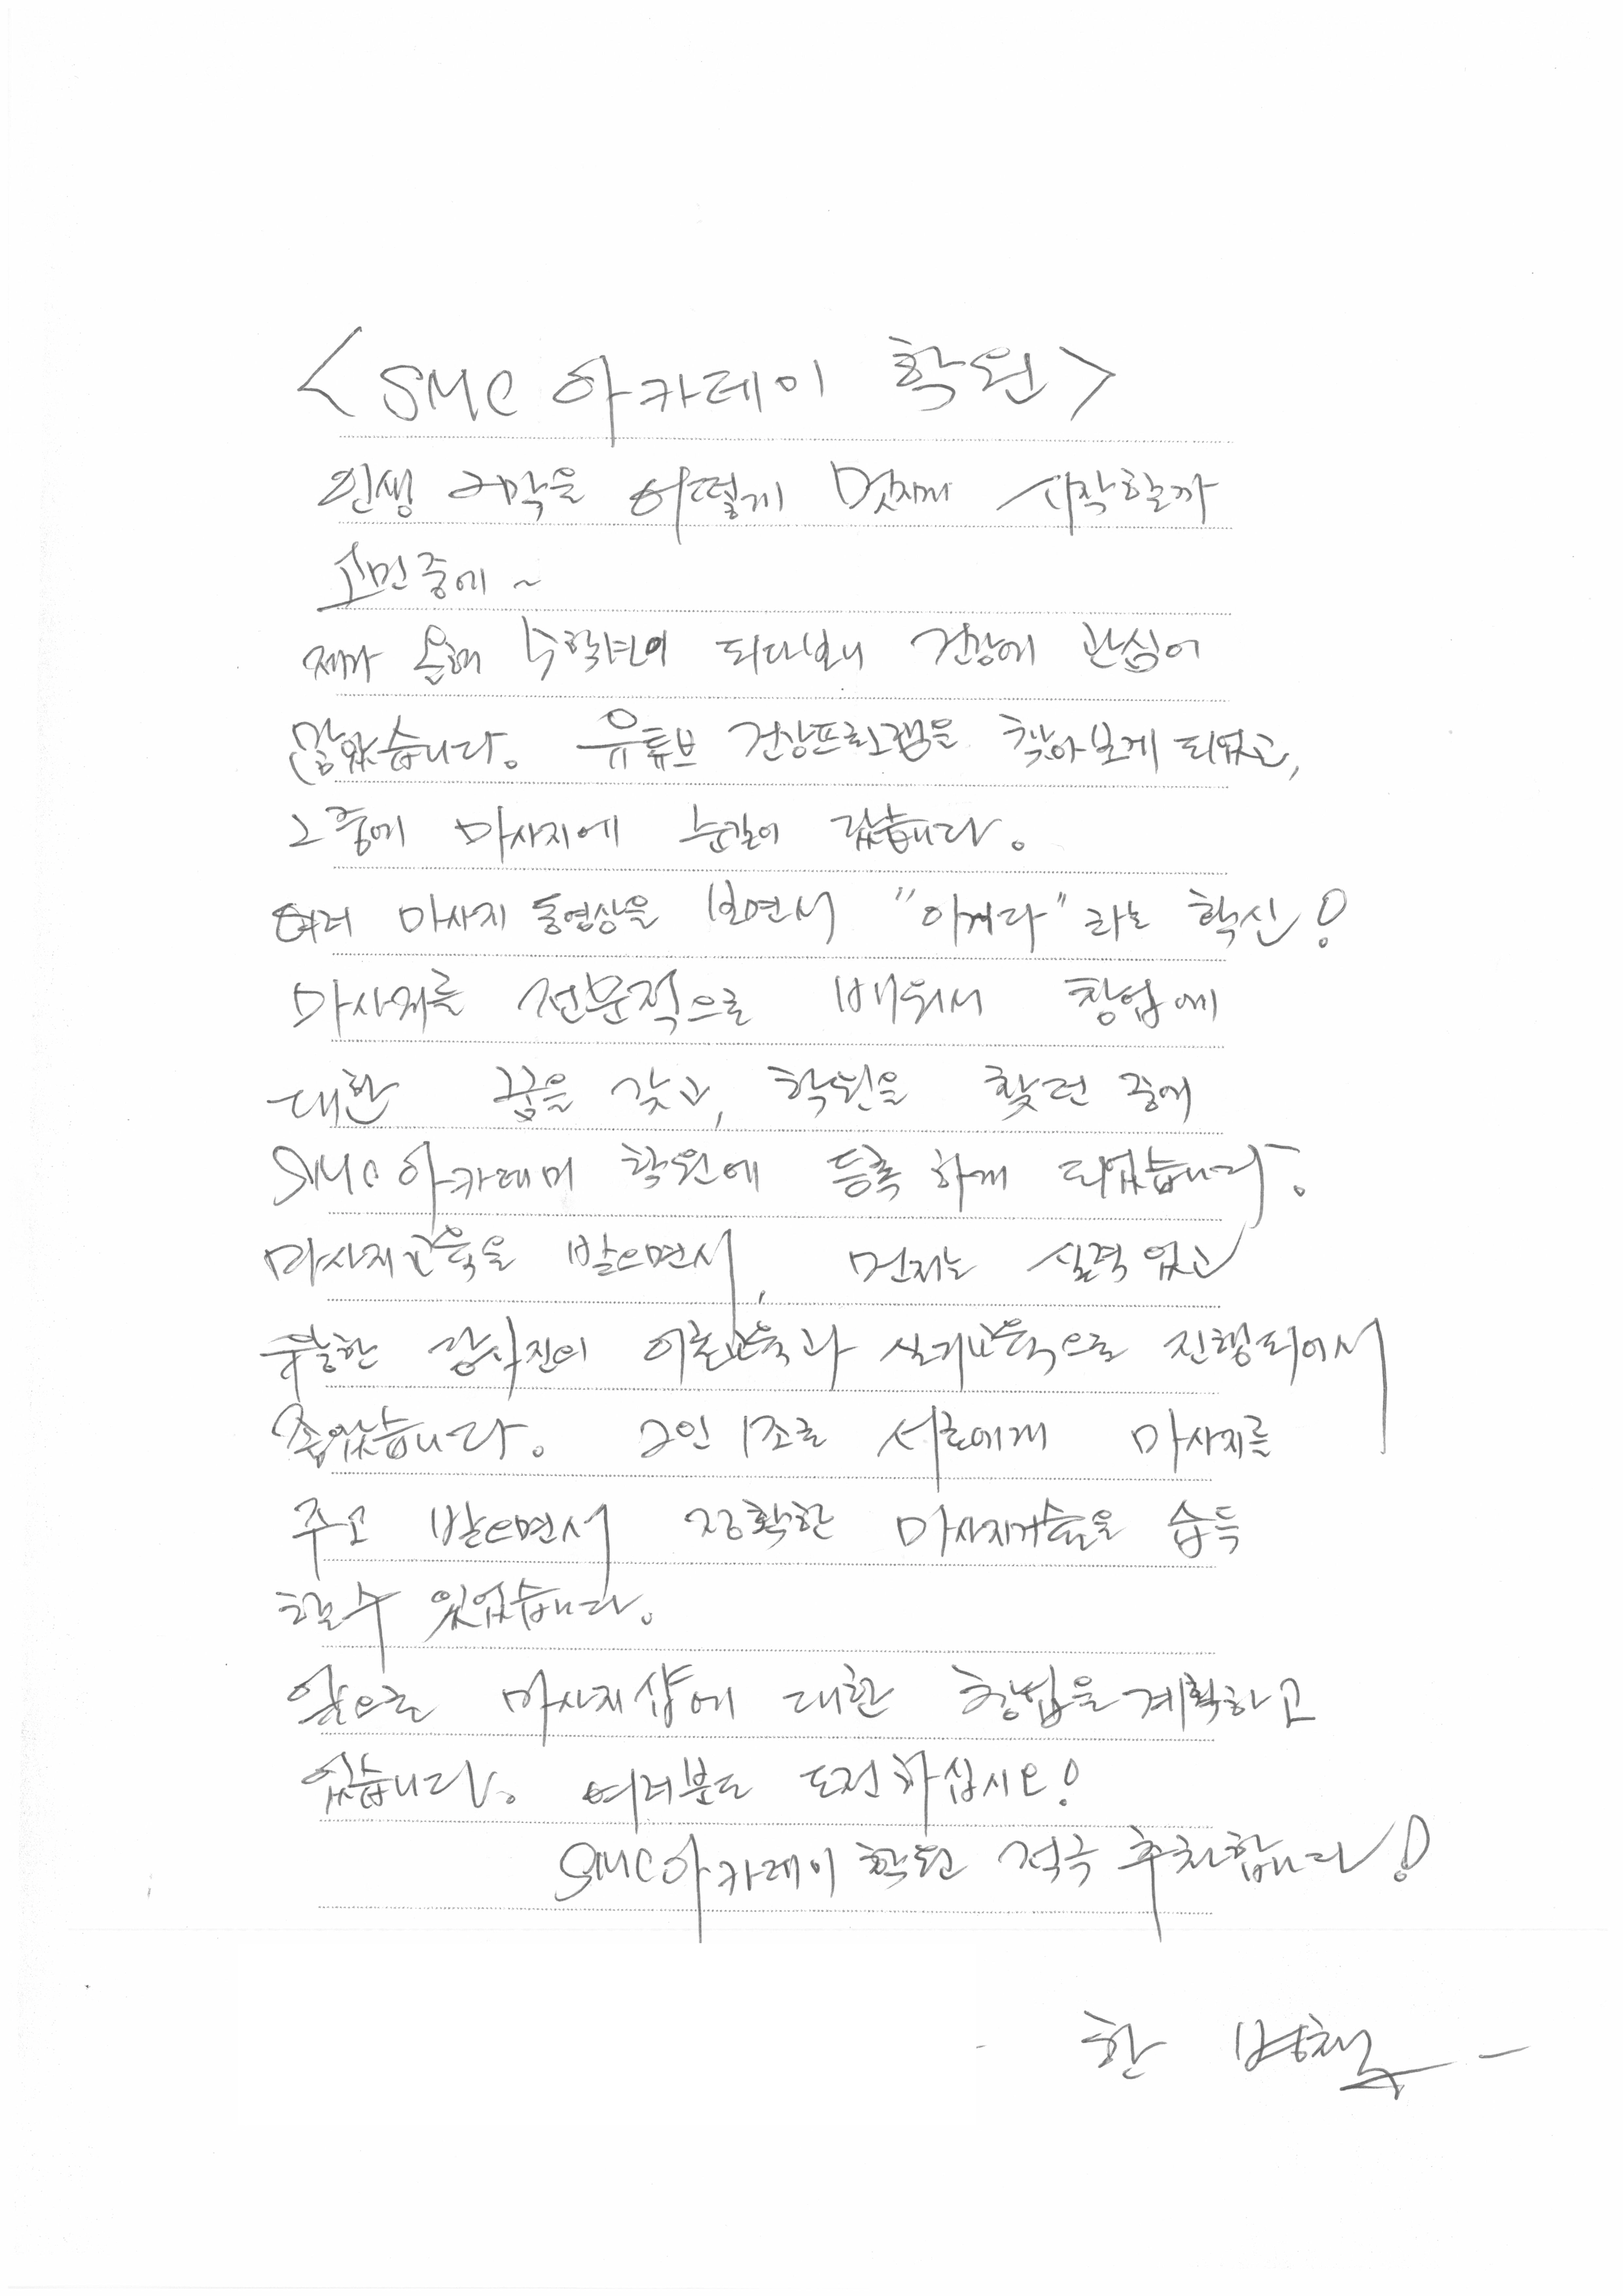 <SMC 아카데미 학원>
인생 2막을 어떻게 멋지게 시작할까
고민중에~
제가 올해 되다보니 건강에 관심이
많았습니다. 유튜브 건강프로그램을 찾아보게 되었고,
그중에 마사지에 눈길이 갔습니다.
여러 마사지 동영상을 보면서 "이거다"라는 확신!
마사지를 전문적으로 배워서 창업에
대한 꿈을 갖고, 학원을 찾던 중에
SMC아카데미 학원에 등록하게 되었습니다.
마사지교육을 받으면서, 먼저는 실력있고
훌륭한 강사진의 이론교육과 실기교육으로 진행되어서
좋았습니다. 2인 1조로 서로에게 마사지를
주고 받으면서 정확한 마사지기술을 습득
할 수 있었습니다.
앞으로 마사지샵에 대한 창업을 계획하고
있습니다. 여러분도 도전하십시오!
SMC아카데미 학원 적극 추천합니다!
- 한 -